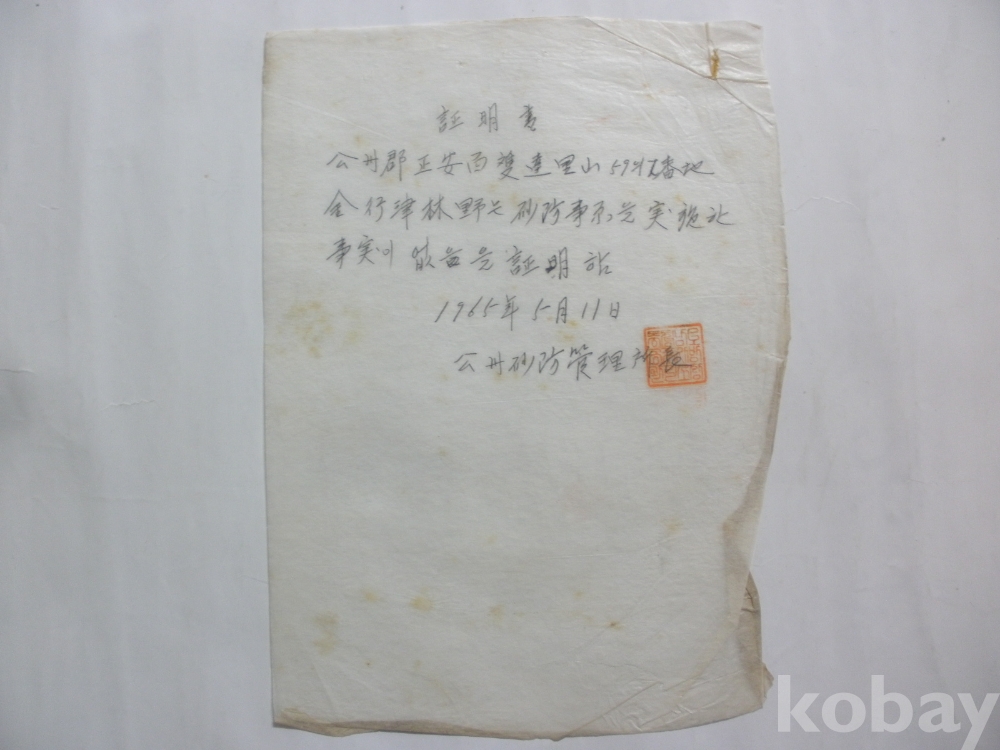 証明書
公州郡正安面雙達里山59의 番地
金行津林野는 砂防事業을 実施한
事実이 없음을 証明함
1965年 5月 11日
公州砂防管理所長
kobay